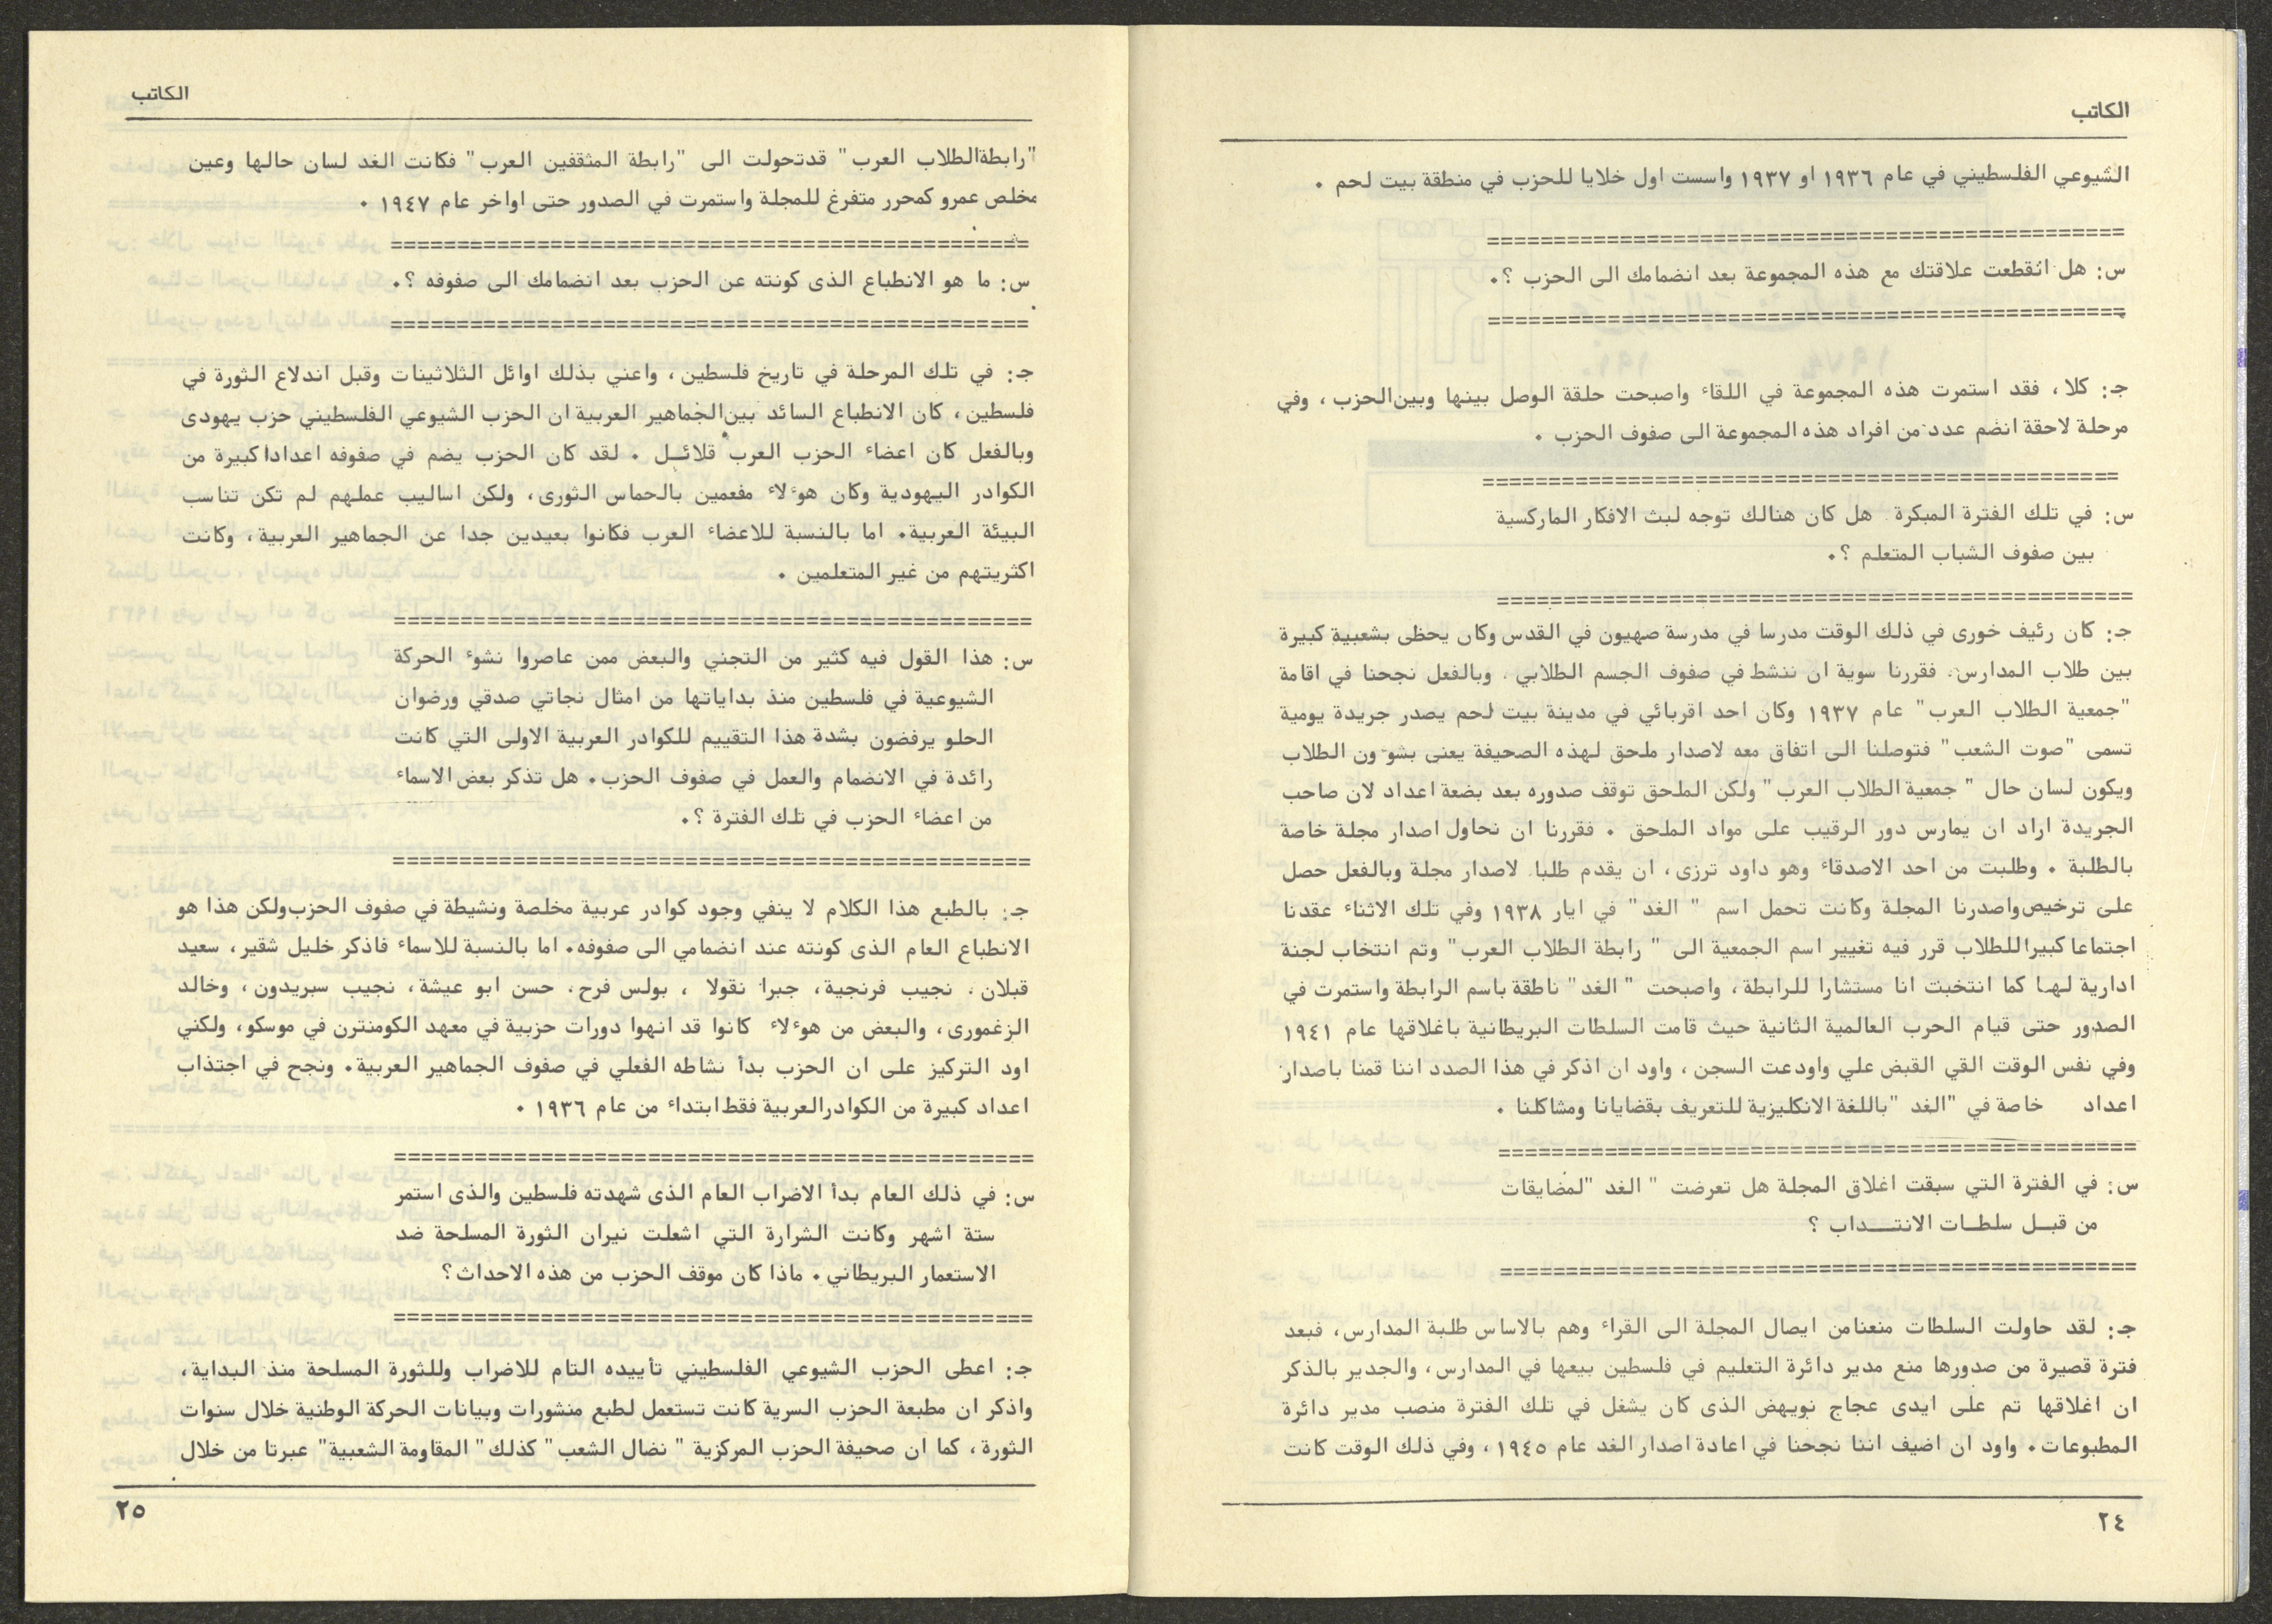 الكاتب
الشيوعي الفلسطيني في عام ١٩٣٦ او ١٩٣٧ واسست اول خلايا للحزب في منطقة بيت لحم .
==============================================
س: هل انقطعت علاقتك مع هذه المجموعة بعد انضمامك الى الحزب ؟.
==============================================
جـ: كلا ، فقد استمرت هذه المجموعة في اللقاء واصبحت حلقة الوصل بينها وبين الحزب ، وفي
مرحلة لاحقة انضم عدد من افراد هذه المجموعة الى صفوف الحزب .
==============================================
س: في تلك الفترة المبكرة هل كان هنالك توجه لبث الافكار الماركسية
بين صفوف الشباب المتعلم ؟.
==============================================
جـ: كان رئيف خورى في ذلك الوقت مدرسا في مدرسة صهيون في القدس وكان يحظى بشعبية كبيرة
بين طلاب المدارس. فقررنا سوية ان ننشط في صفوف الجسم الطلابي . وبالفعل نجحنا في اقامة
"جمعية الطلاب العرب" عام ١٩٣٧ وكان احد اقربائي في مدينة بيت لحم يصدر جريدة يومية
تسمى "صوت الشعب" فتوصلنا الى اتفاق معه لاصدار ملحق لهذه الصحيفة يعنى بشوءون الطلاب
ويكون لسان حال " جمعية الطلاب العرب" ولكن الملحق توقف صدوره بعد بضعة اعداد لان صاحب
الجريدة اراد ان يمارس دور الرقيب على مواد الملحق . فقررنا ان نحاول اصدار مجلة خاصة
بالطلبة . وطلبت من احد الاصدقاء وهو داود ترزى ، ان يقدم طلبا لاصدار مجلة وبالفعل حصل
على ترخيص واصدرنا المجلة وكانت تحمل اسم " الغد" في ايار ١٩٣٨ وفي تلك الاثناء عقدنا
اجتماعا كبيرا للطلاب قرر فيه تغيير اسم الجمعية الى " رابطة الطلاب العرب" وتم انتخاب لجنة
ادارية لها كما انتخبت انا مستشارا للرابطة ، واصبحت " الغد" ناطقة باسم الرابطة واستمرت في
الصدور حتى قيام الحرب العالمية الثانية حيث قامت السلطات البريطانية باغلاقها عام ١٩٤١
وفي نفس الوقت القي القبض علي واودعت السجن ، واود ان اذكر في هذا الصدد اننا قمنا باصدار
اعداد خاصة في "الغد "باللغة الانكليزية للتعريف بقضايانا ومشاكلنا .
==============================================
س: في الفترة التي سبقت اغلاق المجلة هل تعرضت " الغد "لمضايقات
من قبــل سلطــات الانتــداب ؟
==============================================
جـ: لقد حاولت السلطات منعنا من ايصال المجلة الى القراء وهم بالاساس طلبة المدارس، فبعد
فترة قصيرة من صدورها منع مدير دائرة التعليم في فلسطين بيعها في المدارس، والجدير بالذكر
ان اغلاقها تم على ايدى عجاج نويهض الذى كان يشغل في تلك الفترة منصب مدير دائرة
المطبوعات. واود ان اضيف اننا نجحنا في اعادة اصدار الغد عام ١٩٤٥ ، وفي ذلك الوقت كانت
٢٤
الكاتب
"رابطة الطلاب العرب" قد تحولت الى "رابطة المثقفين العرب" فكانت الغد لسان حالها وعين
مخلص عمرو كمحرر متفرغ للمجلة واستمرت في الصدور حتى اواخر عام ١٩٤٧ .
==============================================
س: ما هو الانطباع الذى كونته عن الحزب بعد انضمامك الى صفوفه ؟.
==============================================
جـ: في تلك المرحلة في تاريخ فلسطين ، واعني بذلك اوائل الثلاثينات وقبل اندلاع الثورة في
فلسطين ، كان الانطباع السائد بين الجماهير العربية ان الحزب الشيوعي الفلسطيني حزب يهودى
وبالفعل كان اعضاء الحزب العرب قلائــل . لقد كان الحزب يضم في صفوفه اعدادا كبيرة من
الكوادر اليهودية وكان هوءلاء مفعمين بالحماس الثورى ، ولكن اساليب عملهم لم تكن تناسب
البيئة العربية. اما بالنسبة للاعضاء العرب فكانوا بعيدين جدا عن الجماهير العربية ، وكانت
اكثريتهم من غير المتعلمين .
==============================================
س: هذا القول فيه كثير من التجني والبعض ممن عاصروا نشوء الحركة
الشيوعية في فلسطين منذ بداياتها من امثال نجاتي صدقي ورضوان
الحلو يرفضون بشدة هذا التقييم للكوادر العربية الاولى التي كانت
رائدة في الانضمام والعمل في صفوف الحزب. هل تذكر بعض الاسماء
من اعضاء الحزب في تلك الفترة ؟.
==============================================
جـ: بالطبع هذا الكلام لا ينفي وجود كوادر عربية مخلصة ونشيطة في صفوف الحزب ولكن هذا هو
الانطباع العام الذى كونته عند انضمامي الى صفوفه. اما بالنسبة للاسماء فاذكر خليل شقير، سعيد
قبلان . نجيب فرنجية ، جبرا نقولا ، بولس فرح ، حسن ابو عيشة ، نجيب سبريدون ، وخالد
الزغمورى ، والبعض من هوءلاء كانوا قد انهوا دورات حزبية في معهد الكومنترن في موسكو، ولكني
اود التركيز على ان الحزب بدأ نشاطه الفعلي في صفوف الجماهير العربية. ونجح في اجتذاب
اعداد كبيرة من الكوادر العربية فقط ابتداء من عام ١٩٣٦ .
==============================================
س: في ذلك العام بدأ الاضراب العام الذى شهدته فلسطين والذى استمر
ستة اشهر وكانت الشرارة التي اشعلت نيران الثورة المسلحة ضد
الاستعمار البريطاني. ماذا كان موقف الحزب من هذه الاحداث ؟
==============================================
جـ: اعطى الحزب الشيوعي الفلسطيني تأييده التام للاضراب وللثورة المسلحة منذ البداية ،
واذكر ان مطبعة الحزب السرية كانت تستعمل لطبع منشورات وبيانات الحركة الوطنية خلال سنوات
الثورة ، كما ان صحيفة الحزب المركزية " نضال الشعب" كذلك " المقاومة الشعبية" عبرتا من خلال
٢٥